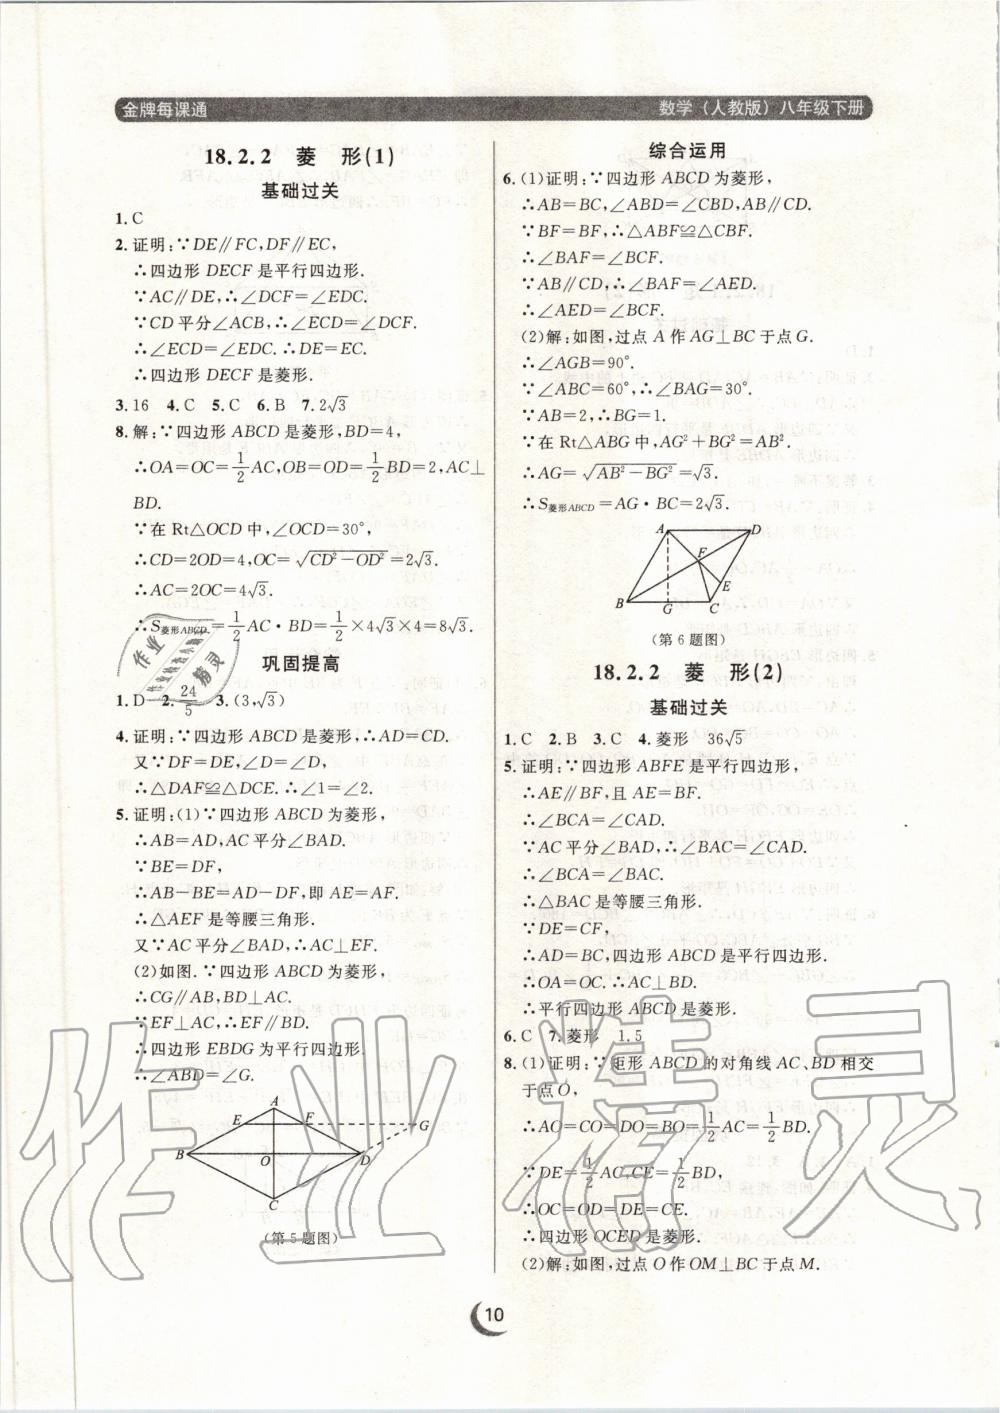 金牌每课通
数学（人教版）八年级下册
18.2.2 菱 形(1)
基础过关
1. C
2. 证明:∵DE∥FC,DF∥EC,
∴四边形 DECF 是平行四边形.
∵AC∥DE,∴∠DCF=∠EDC.
∵CD 平分∠ACB,∴∠ECD=∠DCF.
∴∠ECD=∠EDC. ∴DE=EC.
∴四边形 DECF 是菱形.
3. 16 4. C 5. C 6. B 7. 2√3
8. 解:∵四边形 ABCD 是菱形,BD=4,
∴OA=OC=1/2 AC,OB=OD=1/2 BD=2,AC⊥
BD.
∵在 Rt△OCD 中,∠OCD=30°,
∴CD=2OD=4,OC=√(CD²-OD²)=2√3.
∴AC=2OC=4√3.
∴S菱形ABCD=1/2 AC·BD=1/2×4√3×4=8√3.
巩固提高
1. D 2. 24/5 3. (3,√3)
4. 证明:∵四边形 ABCD 是菱形,∴AD=CD.
又∵DF=DE,∠D=∠D,
∴△DAF≌△DCE. ∴∠1=∠2.
5. 证明:(1)∵四边形 ABCD 为菱形,
∴AB=AD,AC 平分∠BAD.
∵BE=DF,
∴AB-BE=AD-DF,即 AE=AF.
∴△AEF 是等腰三角形.
又∵AC 平分∠BAD,∴AC⊥EF.
(2)如图.∵四边形 ABCD 为菱形,
∴CG∥AB,BD⊥AC.
∵EF⊥AC,∴EF∥BD.
∴四边形 EBDG 为平行四边形.
∴∠ABD=∠G.
A
E F G
B O D
C
(第 5 题图)
综合运用
6. (1)证明:∵四边形 ABCD 为菱形,
∴AB=BC,∠ABD=∠CBD,AB∥CD.
∵BF=BF,∴△ABF≌△CBF.
∴∠BAF=∠BCF.
∵AB∥CD,∴∠BAF=∠AED.
∴∠AED=∠BCF.
(2)解:如图,过点 A 作 AG⊥BC 于点 G.
∴∠AGB=90°.
∵∠ABC=60°,∴∠BAG=30°.
∵AB=2,∴BG=1.
∵在 Rt△ABG 中,AG²+BG²=AB².
∴AG=√(AB²-BG²)=√3.
∴S菱形ABCD=AG·BC=2√3.
A D
F
E
B G C
(第 6 题图)
18.2.2 菱 形(2)
基础过关
1. C 2. B 3. C 4. 菱形 36√5
5. 证明:∵四边形 ABFE 是平行四边形,
∴AE∥BF,且 AE=BF.
∴∠BCA=∠CAD.
∵AC 平分∠BAD,∴∠BAC=∠CAD.
∴∠BCA=∠BAC.
∴△BAC 是等腰三角形.
∵DE=CF,
∴AD=BC.∴四边形 ABCD 是平行四边形.
∴OA=OC. ∴AC⊥BD.
∴平行四边形 ABCD 是菱形.
6. C 7. 菱形 1.5
8. (1)证明:∵矩形 ABCD 的对角线 AC、BD 相交
于点 O,
∴AO=CO=DO=BO=1/2 AC=1/2 BD.
∵DE=1/2 AC,CE=1/2 BD,
∴OC=OD=DE=CE.
∴四边形 OCED 是菱形.
(2)解:如图,过点 O 作 OM⊥BC 于点 M.
10
作业精灵